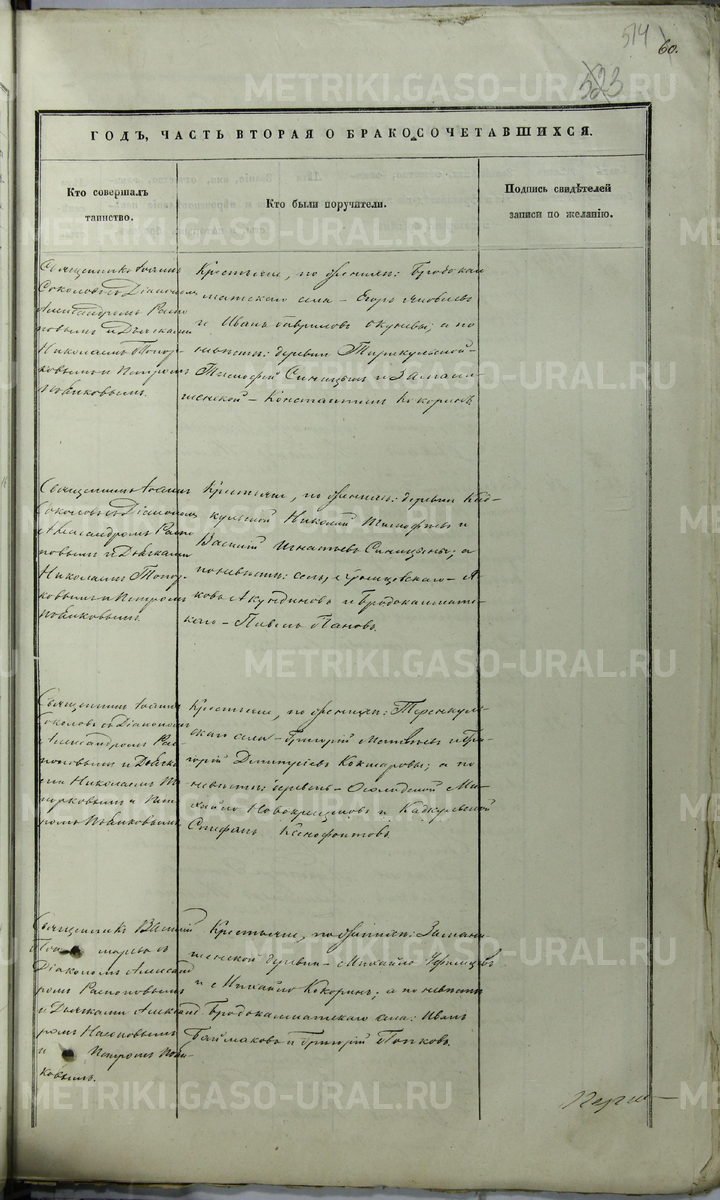 514
60.
523
ГОДЪ, ЧАСТЬ ВТОРАЯ О БРАКОСОЧЕТАВШИХСЯ.
Кто совершалъ
таинство.
Кто были поручители.
Подпись свидѣтелей
записи по желанію.
Священникъ Іоаннъ
Соколовъ съ Діакономъ
Александромъ Распо
повымъ и Дьячками
Николаемъ Топор
ковымъ и Петромъ
Крестьяне, по женихѣ: Бродокал
матскаго села – Егоръ Яковлевъ
и Иванъ Гавриловъ Окуневы; а по
невѣстѣ: деревни
Тимофей Синицынъ и Замани
шенской – Константинъ Кокоринъ
Священникъ Іоаннъ
Соколовъ съ Діакономъ
Александромъ Распо
повымъ и Дьячками
Николаемъ Топор
ковымъ и Петромъ
Крестьяне, по женихѣ: деревни Кад
кульской Николай Тимофѣевъ и
Василій Игнатьевъ Синицыны; а
по невѣстѣ: села – Я
ковъ Акундиновъ и Бродокалматс
каго – Павелъ Пановъ.
Священникъ Іоаннъ
Соколовъ съ Діакономъ
Александромъ Рас
поповымъ и Дьячка
ми Николаемъ То
порковымъ и Пет
ромъ
Крестьяне, по женихѣ: Теренкуль
скаго села – Григорій Матвѣевъ и Гри
горій Димитріевъ Кокшаровы; а по
невѣстѣ: деревень – Ми
хайло Новокрещеновъ и Кадкульской
Стефанъ Ксенофонтовъ
Священникъ Василій
съ
Діакономъ Алексан
дромъ Распоповымъ
и Дьячками Александ
ромъ Насоновымъ
и Петромъ
ковымъ.
Крестьяне, по женихѣ: Замани
шенской деревни – Михайло
и Михайло Кокоринъ; а по невѣстѣ
Бродокалматскаго села: Иванъ
Баймаковъ и Григорій Попковъ.
METRIKI.GASO-URAL.RU